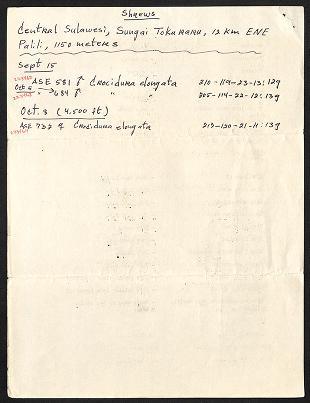 Shrews
Central Sulawesi, Sungai Tokararu, 12 km ENE
Palili, 1150 meters
Sept 15
ASE 581 ♂ Crocidura elongata 210-119-23-13:12g
Oct 4 " 684 ♂ " " 205-114-22-12:13g
Oct. 8 (4,500 ft)
ASE 732 ♀ Crocidura elongata 219-120-21-11:13g